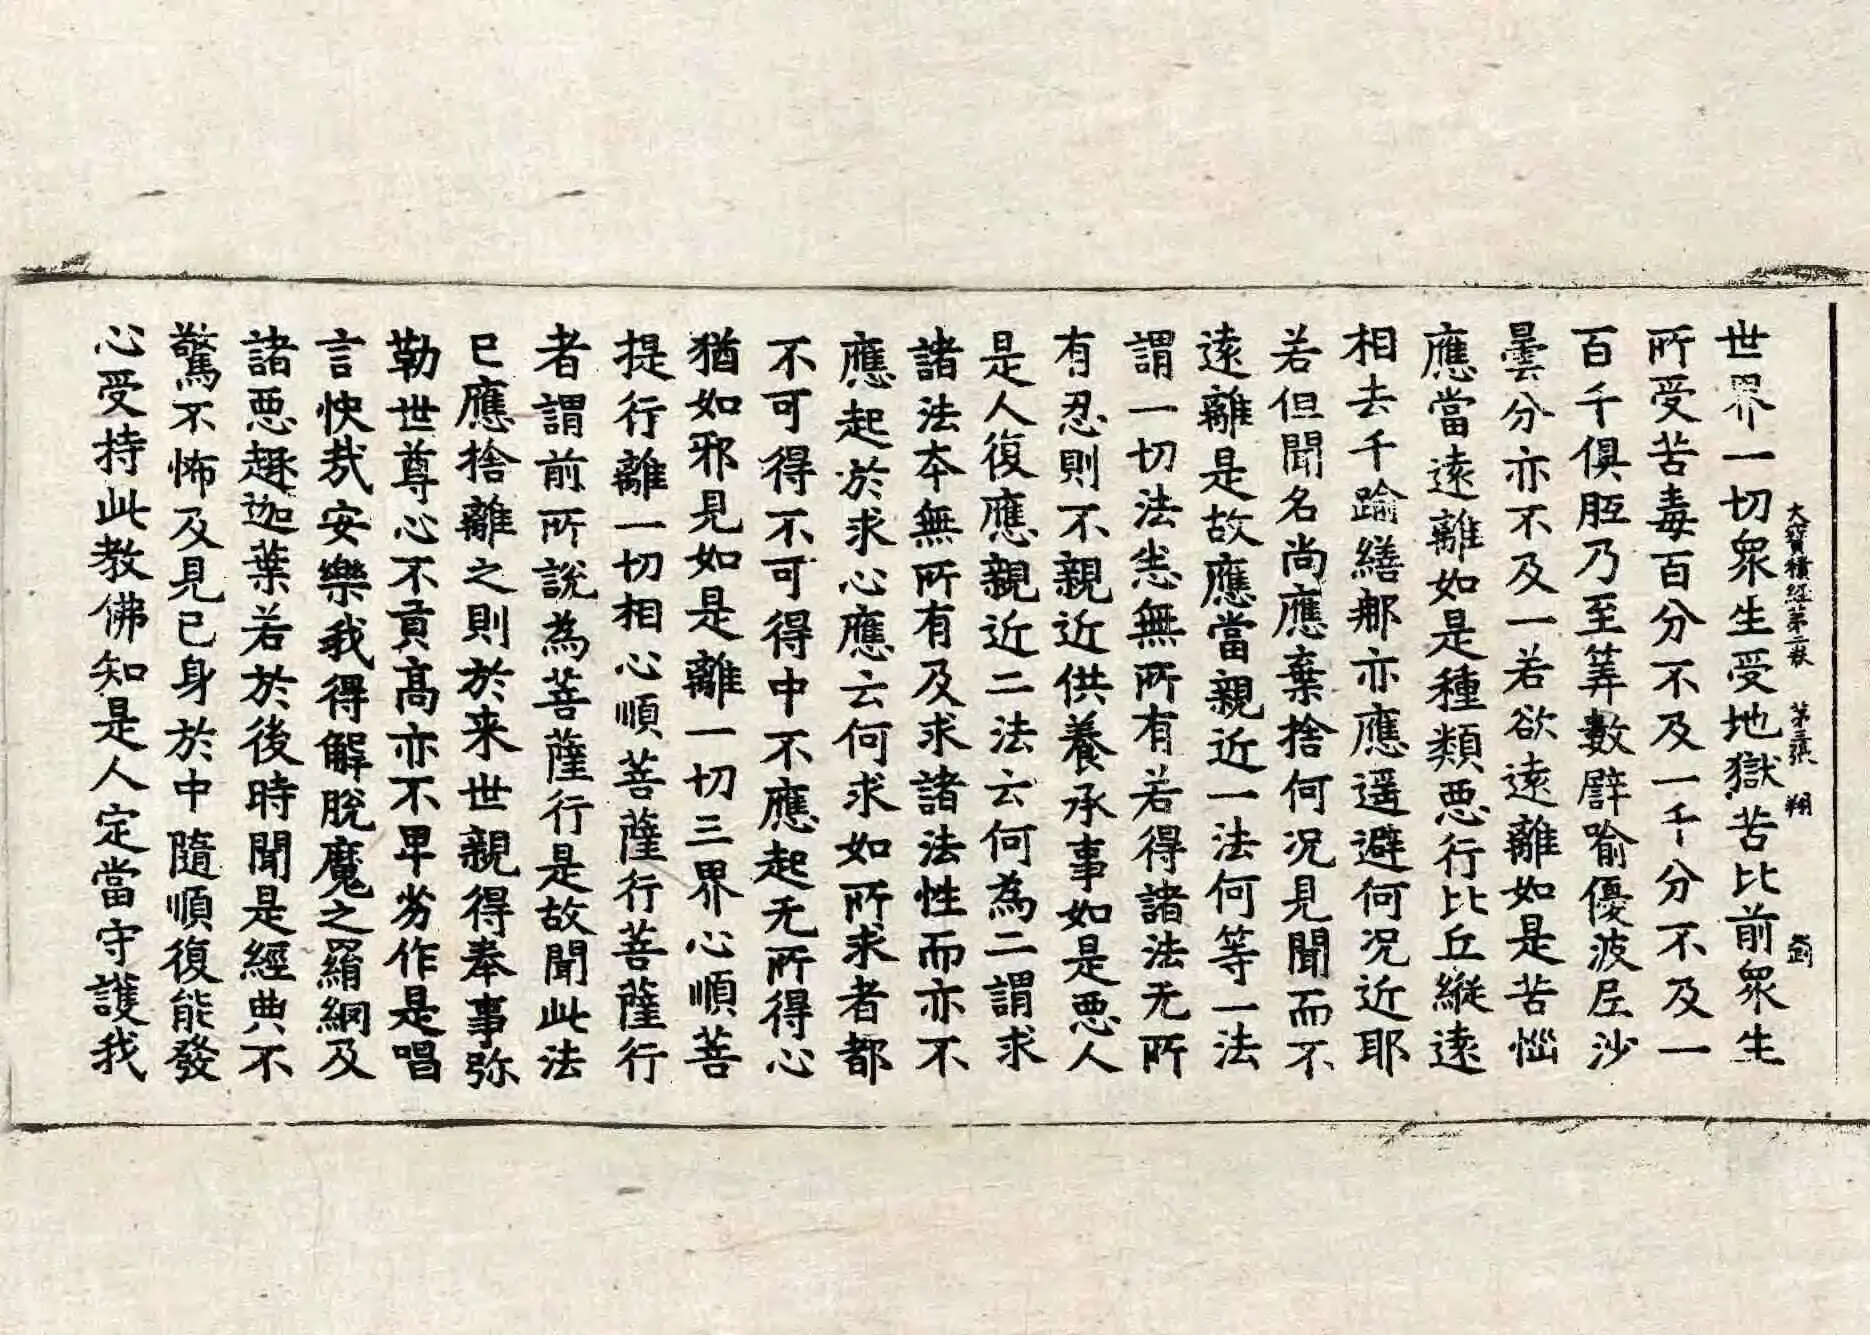 大寶積經第二卷 第三張 翔
世界一切衆生受地獄苦比前衆生
所受苦毒百分不及一千分不及一
百千俱胝乃至筭數譬喻優波尼沙
曇分亦不及一若欲遠離如是苦惱
應當遠離如是種類惡行比丘縱遠
相去千踰繕那亦應遥避何況近耶
若但聞名尚應棄捨何況見聞而不
遠離是故應當親近一法何等一法
謂一切法悉無所有若得諸法无所
有忍則不親近供養承事如是惡人
是人復應親近二法云何為二謂求
諸法本無所有及求諸法性而亦不
應起於求心應云何求如所求者都
不可得不可得中不應起无所得心
猶如邪見如是離一切三界心順菩
提行離一切相心順菩薩行菩薩行
者謂前所說為菩薩行是故聞此法
已應捨離之則於来世親得奉事弥
勒世尊心不貢高亦不卑劣作是唱
言快哉安樂我得解脫魔之羂網及
諸惡趣迦葉若於後時聞是經典不
驚不怖及見已身於中隨順復能發
心受持此教佛知是人定當守護我